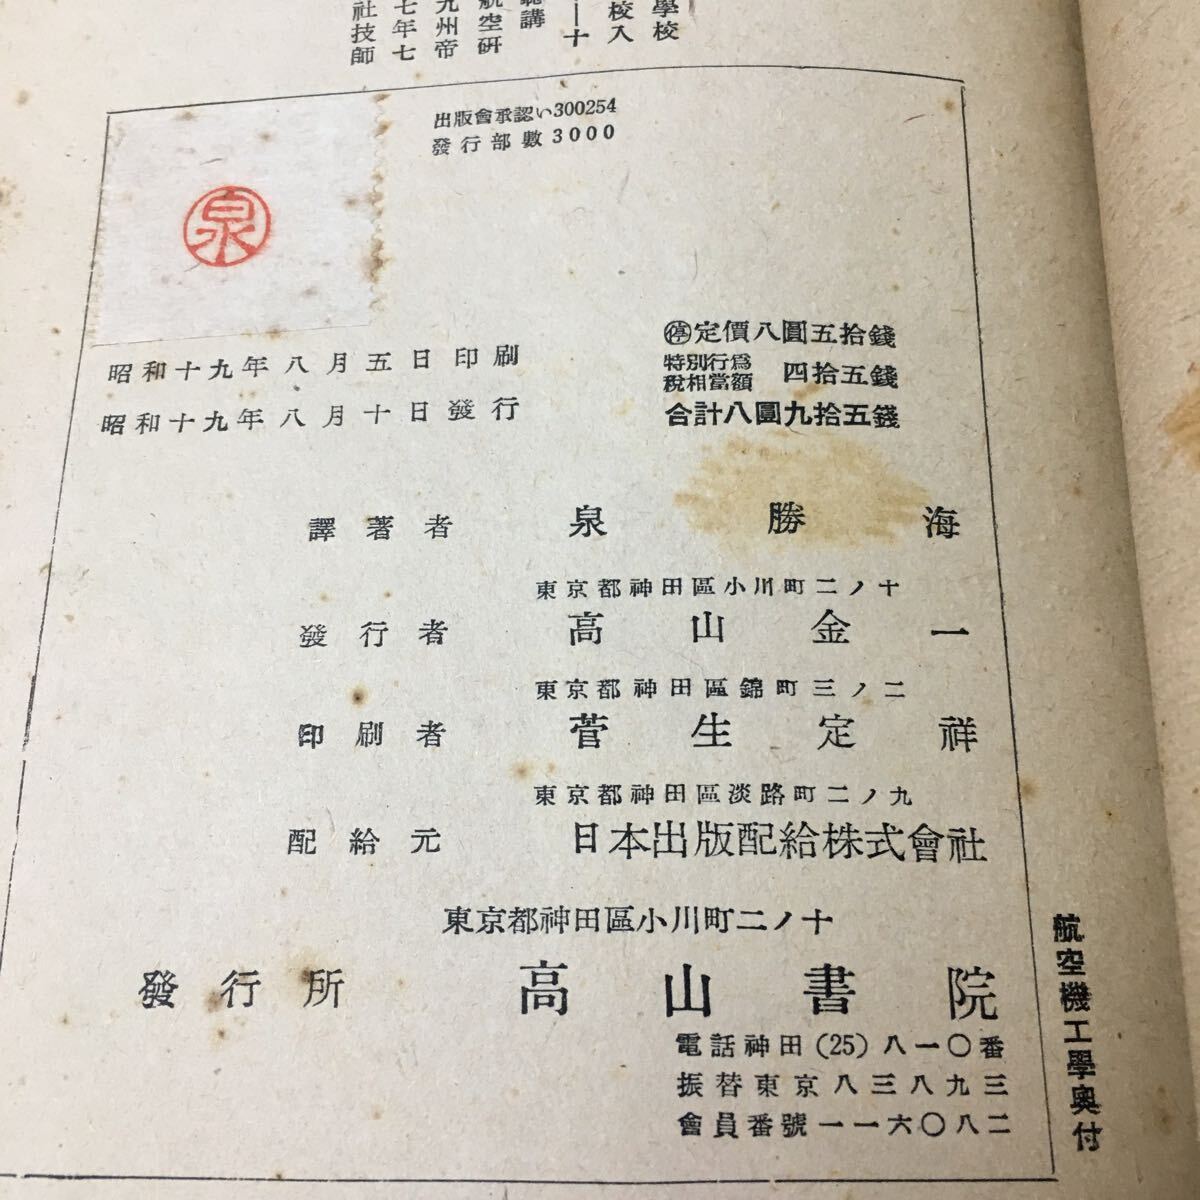 學校
校入
一十
講
航空研
九州帝
七年七
社技師
出版會承認い300254
發行部數3000
泉
停定價八圓五拾錢
特別行爲
税相當額
四拾五錢
合計八圓九拾五錢
昭和十九年八月五日印刷
昭和十九年八月十日發行
譯著者 泉勝海
東京都神田區小川町二ノ十
發行者 高山金一
東京都神田區錦町三ノ二
印刷者 菅生定祥
東京都神田區淡路町二ノ九
配給元 日本出版配給株式會社
東京都神田區小川町二ノ十
發行所 高山書院
電話神田(25)八一〇番
振替東京八三八九三
會員番號一一六〇八二
航空機工學奥付